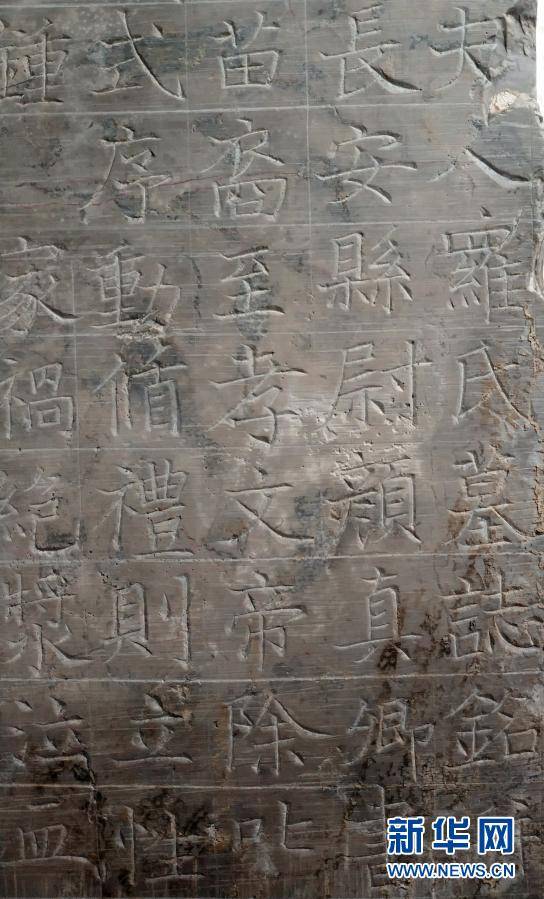 夫人羅氏墓誌銘
長安縣尉顏真卿書
苗裔至孝文帝除吒
式序動循禮則立性
鍾家禍絕漿泣血
新华网
WWW.NEWS.CN